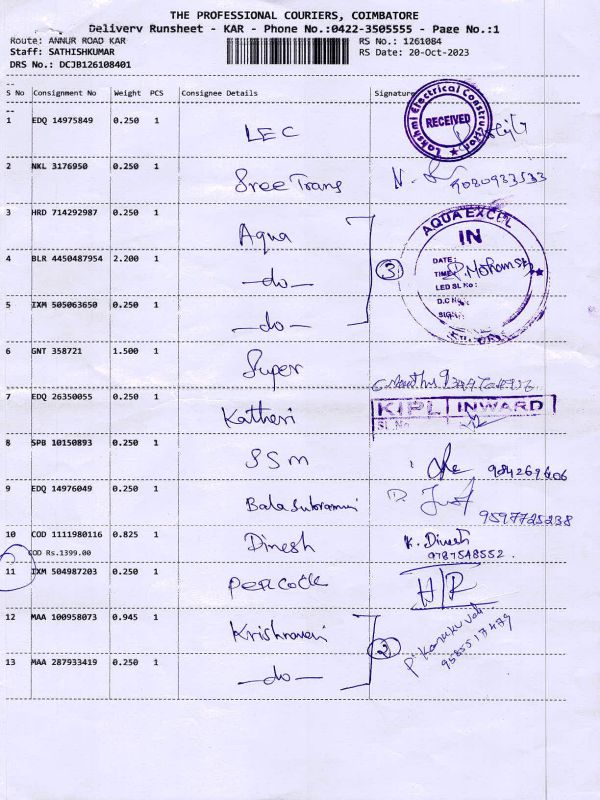 THE PROFESSIONAL COURIERS, COIMBATORE
Delivery Runsheet - KAR - Phone No.:0422-3505555 - Page No.:1
Route: ANNUR ROAD KAR RS No.: 1261084
Staff: SATHISHKUMAR RS Date: 20-Oct-2023
DRS No.: DCJB126108401
S No Consignment No Weight PCS Consignee Details Signature
1 EDQ 14975849 0.250 1 LEC
Lakshmi Electrical Construction
RECEIVED
2 NKL 3176950 0.250 1 Sree Trans
3 HRD 714292987 0.250 1 Aqua
AQUA EXCEL
IN
4 BLR 4450487954 2.200 1 -do- 3
DATE:
TIME: P. Mohan
LED SL No:
D.C No
SIGN:
5 IXM 505063650 0.250 1 -do-
6 GNT 358721 1.500 1 Super
7 EDQ 26350055 0.250 1 Kathevi
KIPL INWARD
SL.No
8 SPB 10150893 0.250 1 SSM
9 EDQ 14976049 0.250 1 Balasubramani
9597725238
10 COD 1111980116 0.825 1 Dinesh K. Dinesh
COD Rs.1399.00 9787548552.
11 IXM 504987203 0.250 1 Percock
12 MAA 100958073 0.945 1 Krishnaveni
2
9585517479
13 MAA 287933419 0.250 1 -do-